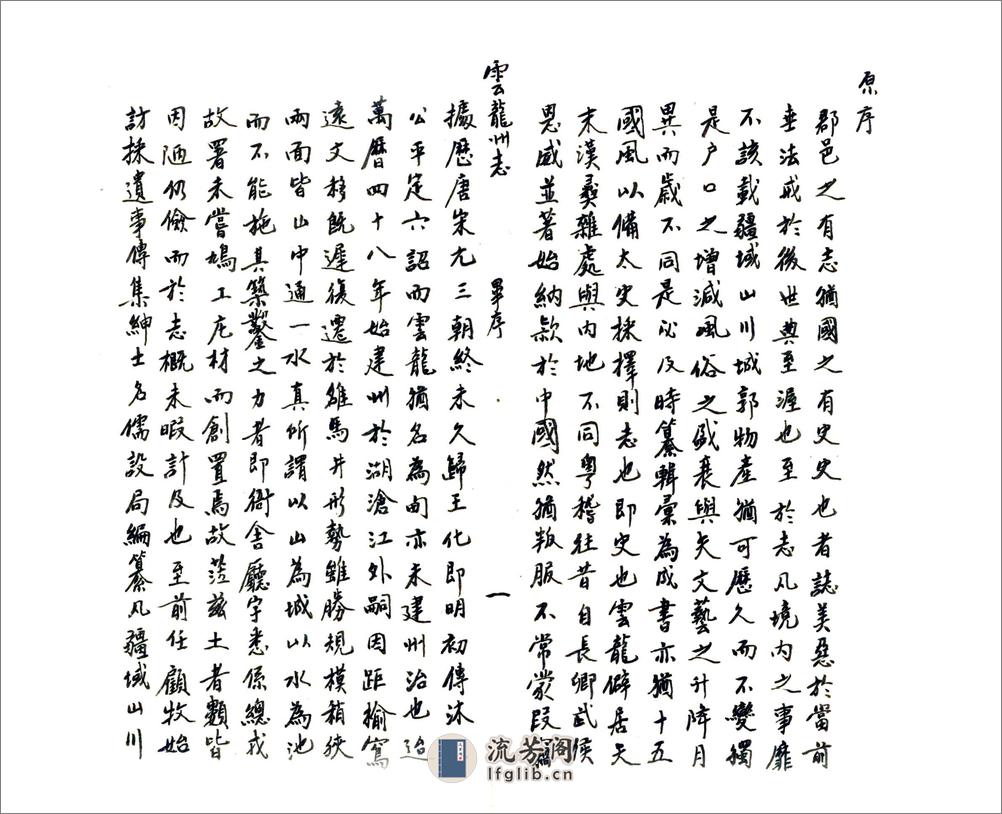 原序
郡邑之有志猶國之有史史也者誌美惡於當前
垂法戒於後世典至渥也至於志凡境内之事靡
不該載疆域山川城郭物產猶可歷久而不變獨
是户口之增減風俗之盛衰與夫文藝之升降月
異而歲不同是必及時纂輯彙為成書亦猶十五
國風以備太史採擇則志也即史也雲龍僻居天
末漢彝雜處與内地不同粵稽往昔自長卿武侯
恩威並著始納欵於中國然猶叛服不常蒙段竊
雲龍州志 畢序 一
據歷唐宋元三朝終未久歸王化即明初傅沐
公平定六詔而雲龍猶名為甸亦未建州治也迨
萬曆四十八年始建州於湖滄江外嗣因距榆窵
遠文移既遲復遷於雒馬井形勢雖勝規模稍狹
兩面皆山中通一水真所謂以山為城以水為池
而不能施其築鑿之力者即衙舍廳宇悉係總戎
故署未嘗鳩工庀材而創置焉故蒞兹土者類皆
因陋仍儉而於志概未暇計及也至前任顧牧始
訪採遺事傳集紳士名儒設局編纂凡疆域山川
流芳阁
lfglib.cn